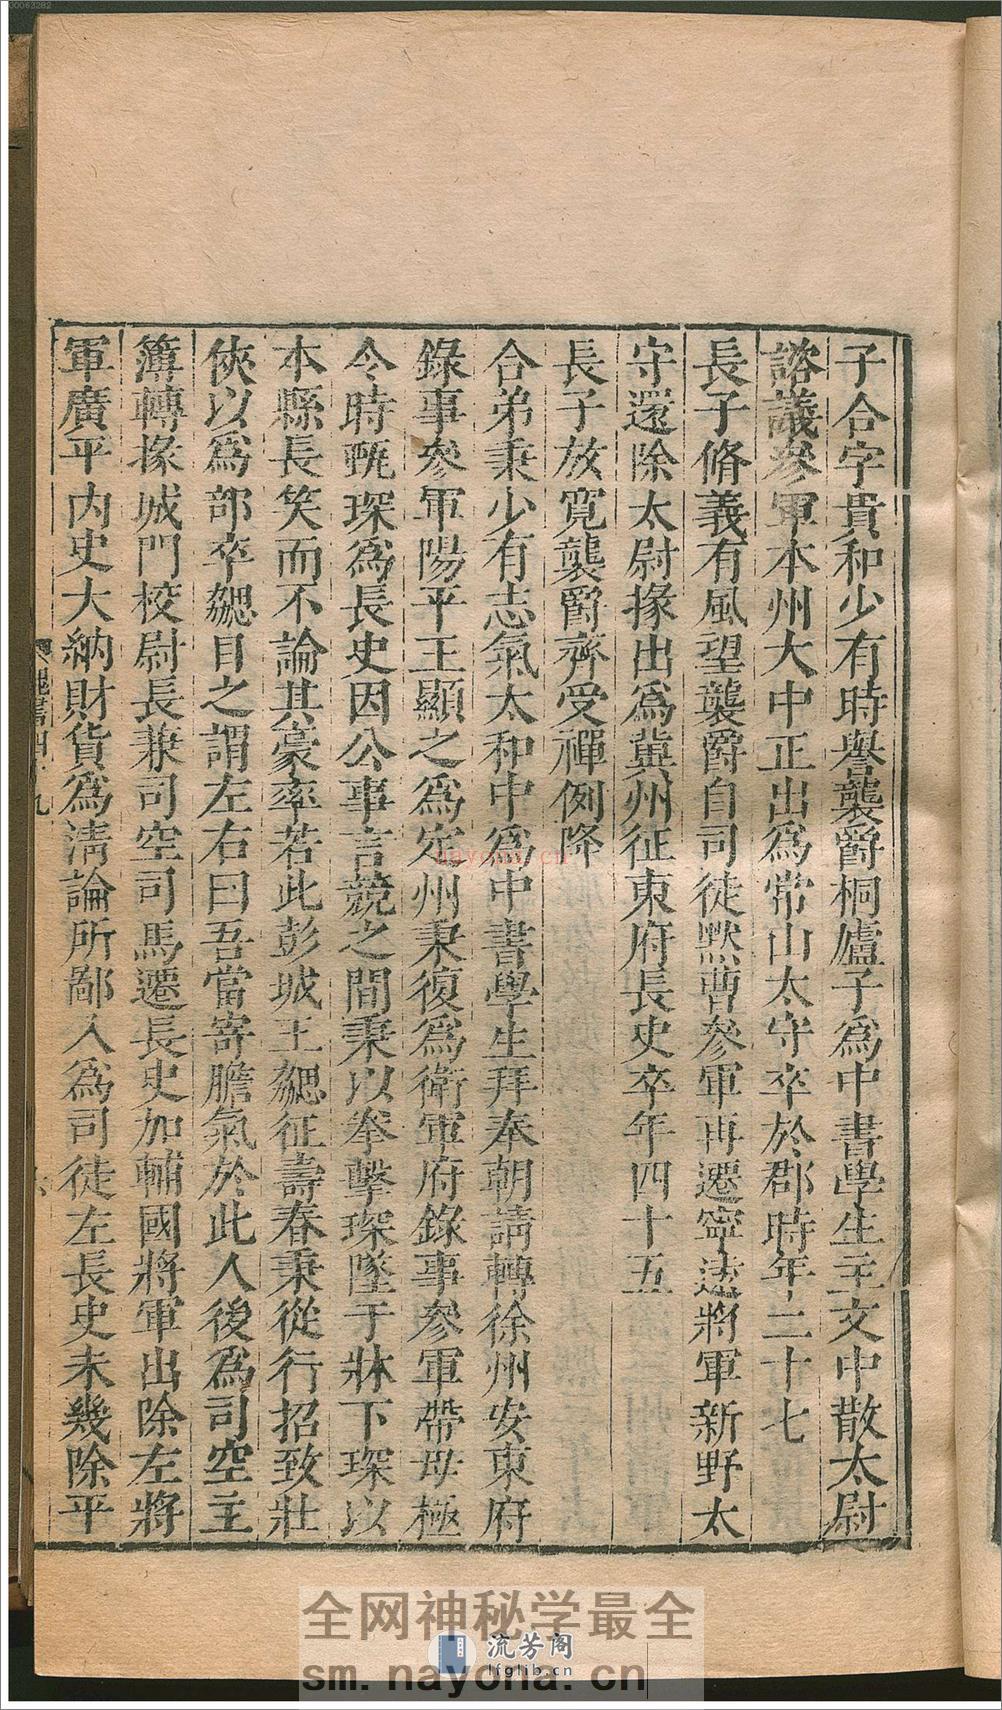 子合字貴和少有時譽襲爵桐廬子爲中書學生主文中散太尉
諮議參軍本州大中正出爲常山太守卒於郡時年二十七
長子脩義有風望襲爵自司徒默曹參軍再遷寧遠將軍新野太
守還除太尉掾出爲冀州征東府長史卒年四十五
長子放寬襲爵齊受禪例降
合弟秉少有志氣太和中爲中書學生拜奉朝請轉徐州安東府
錄事參軍陽平王顯之爲定州秉復爲衛軍府錄事參軍帶毋極
令時甄琛爲長史因公事言競之間秉以拳擊琛墜于牀下琛以
本縣長笑而不論其豪率若此彭城王勰征壽春秉從行招致壯
俠以爲部卒勰目之謂左右曰吾當寄膽氣於此人後爲司空主
簿轉掾城門校尉長兼司空司馬遷長史加輔國將軍出除左將
軍廣平内史大納財貨爲清論所鄙入爲司徒左長史未幾除平
魏書四十九
六
00063282
nayona.cn
全网神秘学最全
流芳阁
lfglib.cn
sm.nayona.cn